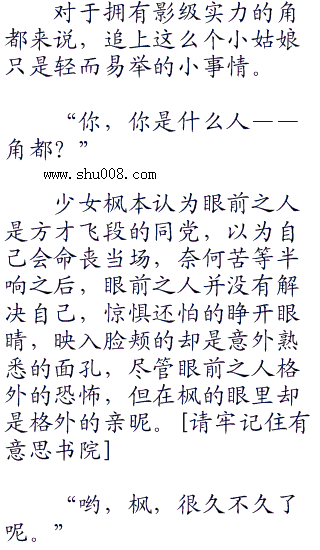 对于拥有影级实力的角
都来说，追上这么个小姑娘
只是轻而易举的小事情。
“你，你是什么人——
角都？”
www.shu008.com
少女枫本认为眼前之人
是方才飞段的同党，以为自
己会命丧当场，奈何苦等半
响之后，眼前之人并没有解
决自己，惊惧还怕的睁开眼
睛，映入脸颊的却是意外熟
悉的面孔，尽管眼前之人格
外的恐怖，但在枫的眼里却
是格外的亲昵。[请牢记住有
意思书院]
“哟，枫，很久不久了
呢。”